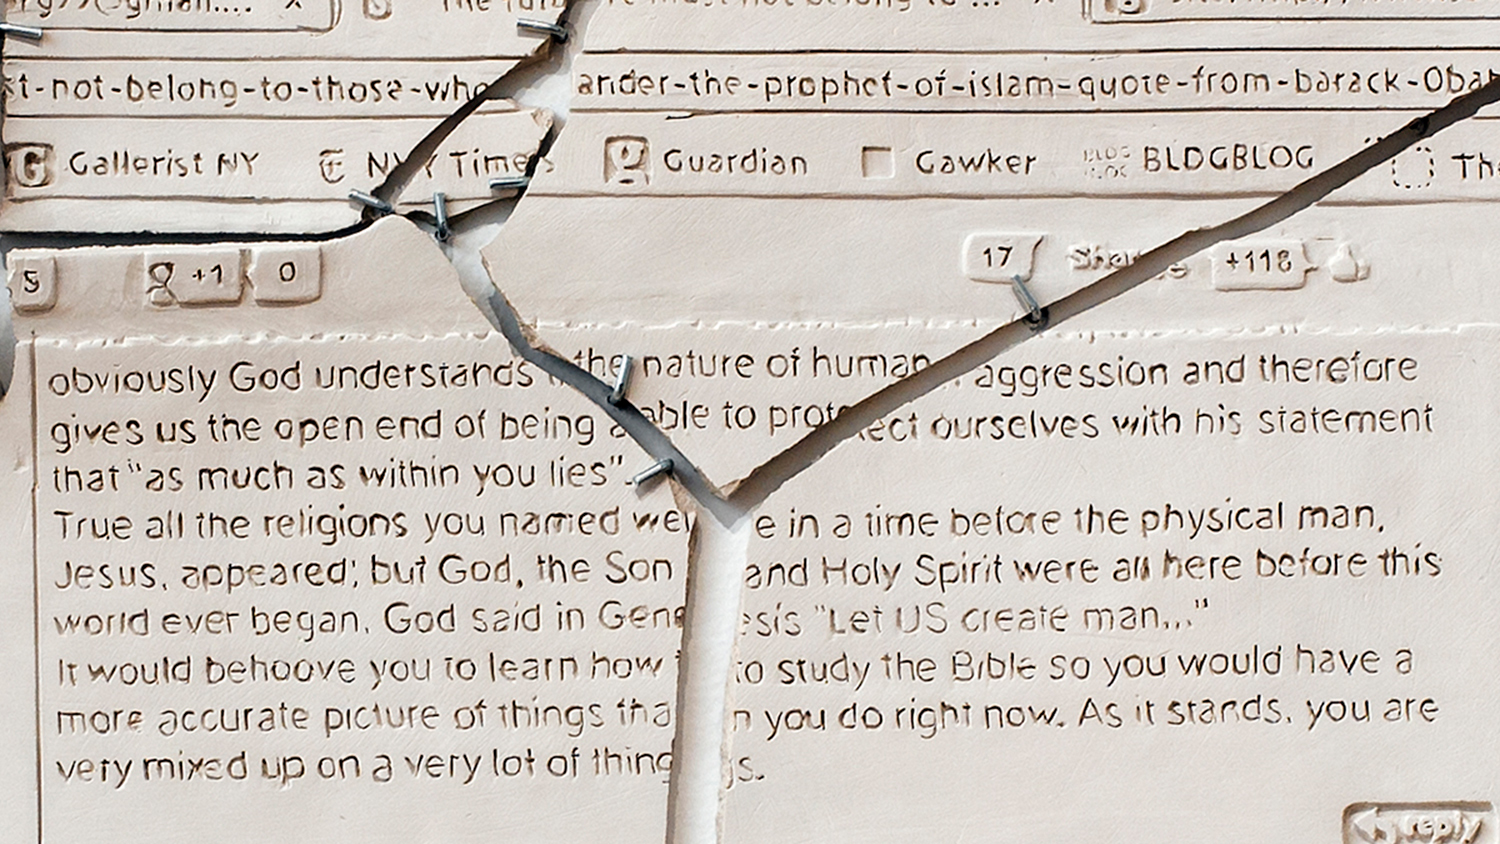 The must not belong to ... x
t-not-belong-to-those-who ander-the-prophet-of-islam-quote-from-barack-Oba
Gallerist NY NY Times Guardian Gawker BLDGBLOG Th
5 +1 0 17 Share +118
obviously God understands the nature of human aggression and therefore
gives us the open end of being able to protect ourselves with his statement
that "as much as within you lies".
True all the religions you named were in a time before the physical man,
Jesus, appeared; but God, the Son and Holy Spirit were all here before this
world ever began. God said in Genesis "Let US create man..."
It would behoove you to learn how to study the Bible so you would have a
more accurate picture of things than you do right now. As it stands, you are
very mixed up on a very lot of things.
reply